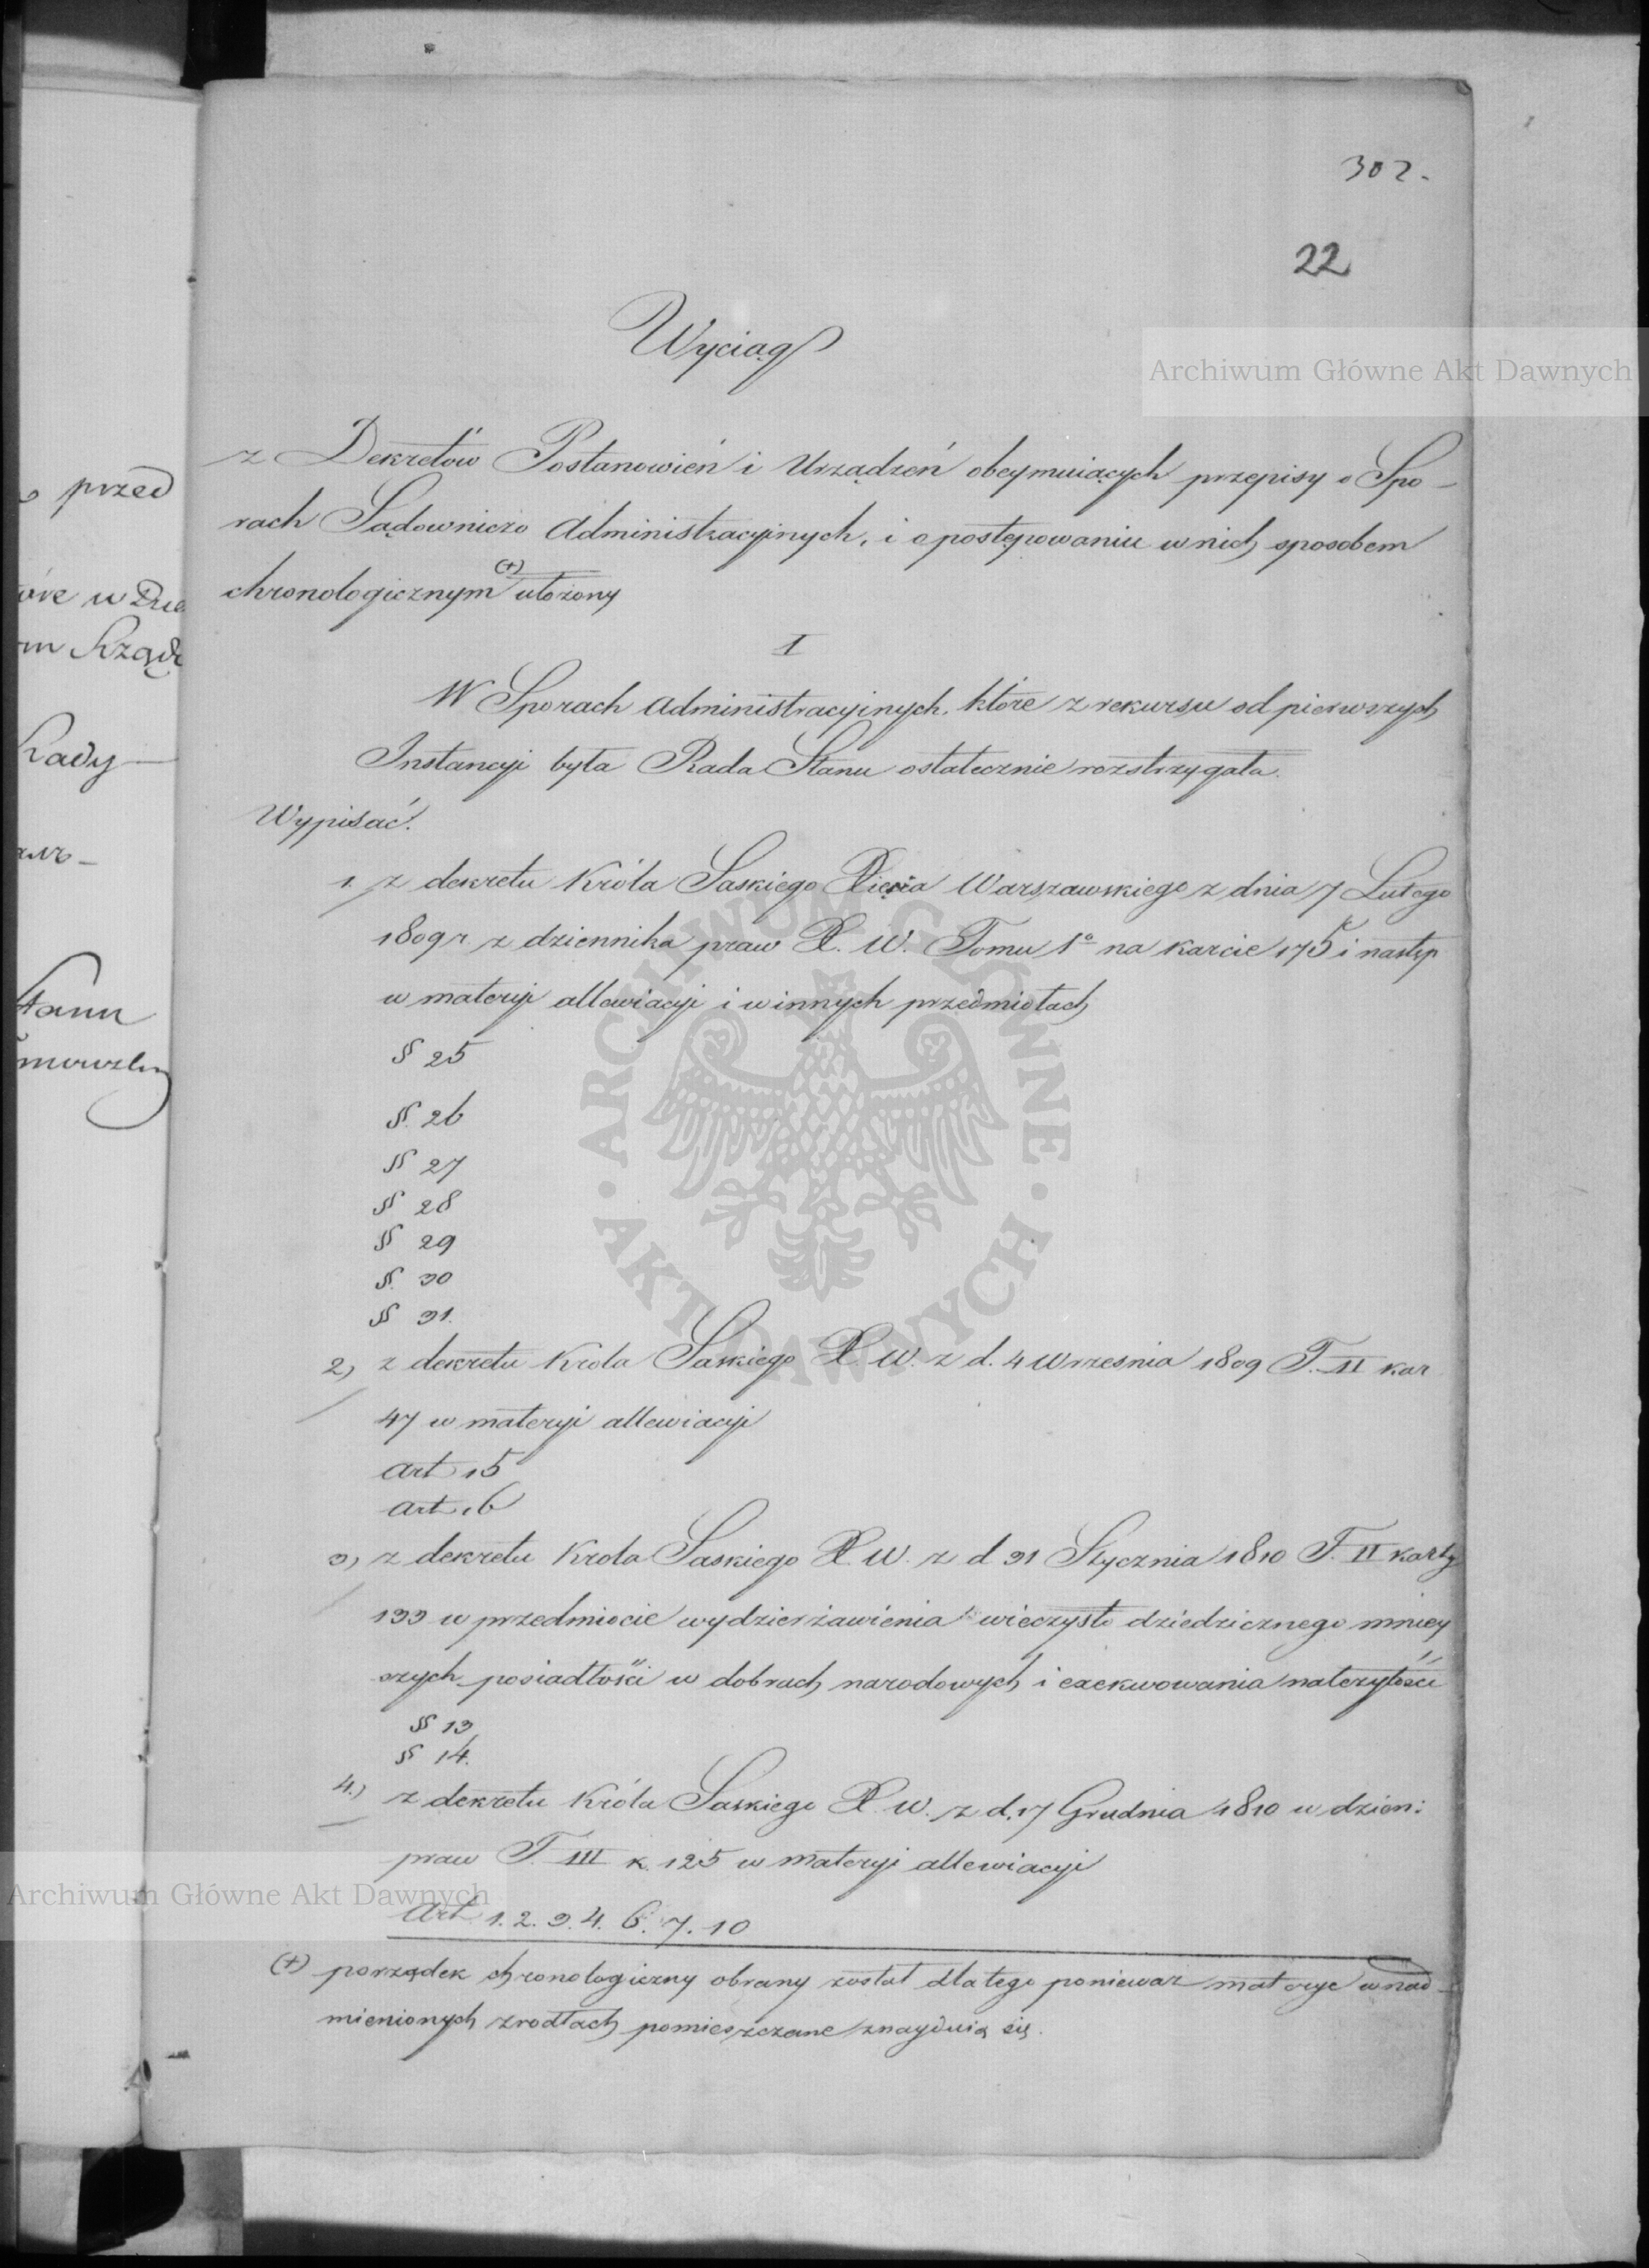 302.
22
Wyciąg
z Dekretów Postanowień i Urządzeń obeymuiących przepisy o Spo-
rach Sądowniczo Administracyjnych, i o postępowaniu w nich sposobem
chronologicznym (+) ułożony
I
W Sporach administracyjnych, które z rekursu od pierwszych
Instancyi była Rada Stanu ostatecznie rozstrzygała.
Wypisać.
1. z dekretu Króla Saskiego Xięcia Warszawskiego z dnia 7 Lutego
1809 r z dziennika praw X. W. Tomu 1º na karcie 175 i następ
w materyi allewiacyi i w innych przedmiotach
§ 25
§. 26
§ 27
§ 28
§ 29
§. 30
§ 31.
2) z dekretu Krola Saskiego X. W. z d. 4 Wrzesnia 1809 T. II kar
47 w materyi allewiacyi
art 15
art 16
3) z dekretu Krola Saskiego X. W. z d 31 Stycznia 1810 T. II karty
133 w przedmiocie wydzierżawienia wieczysto dziedzicznego mniey
szych posiadłości w dobrach narodowych i exekwowania należytości
§ 13
§ 14.
4.) z dekretu Króla Saskiego X. W. z d. 17 Grudnia 1810 w dzien:
praw T. III k. 125 w materyi allewiacyi
Art. 1. 2. 3. 4. 6. 7. 10
(+) porządek chronologiczny obrany został dla tego ponieważ materye w nad-
mienionych zrodłach pomieszczane znayduią się.
przed
Rady
Stanu
Archiwum Główne Akt Dawnych
ARCHIWUM GŁÓWNE
AKT DAWNYCH
Archiwum Główne Akt Dawnych